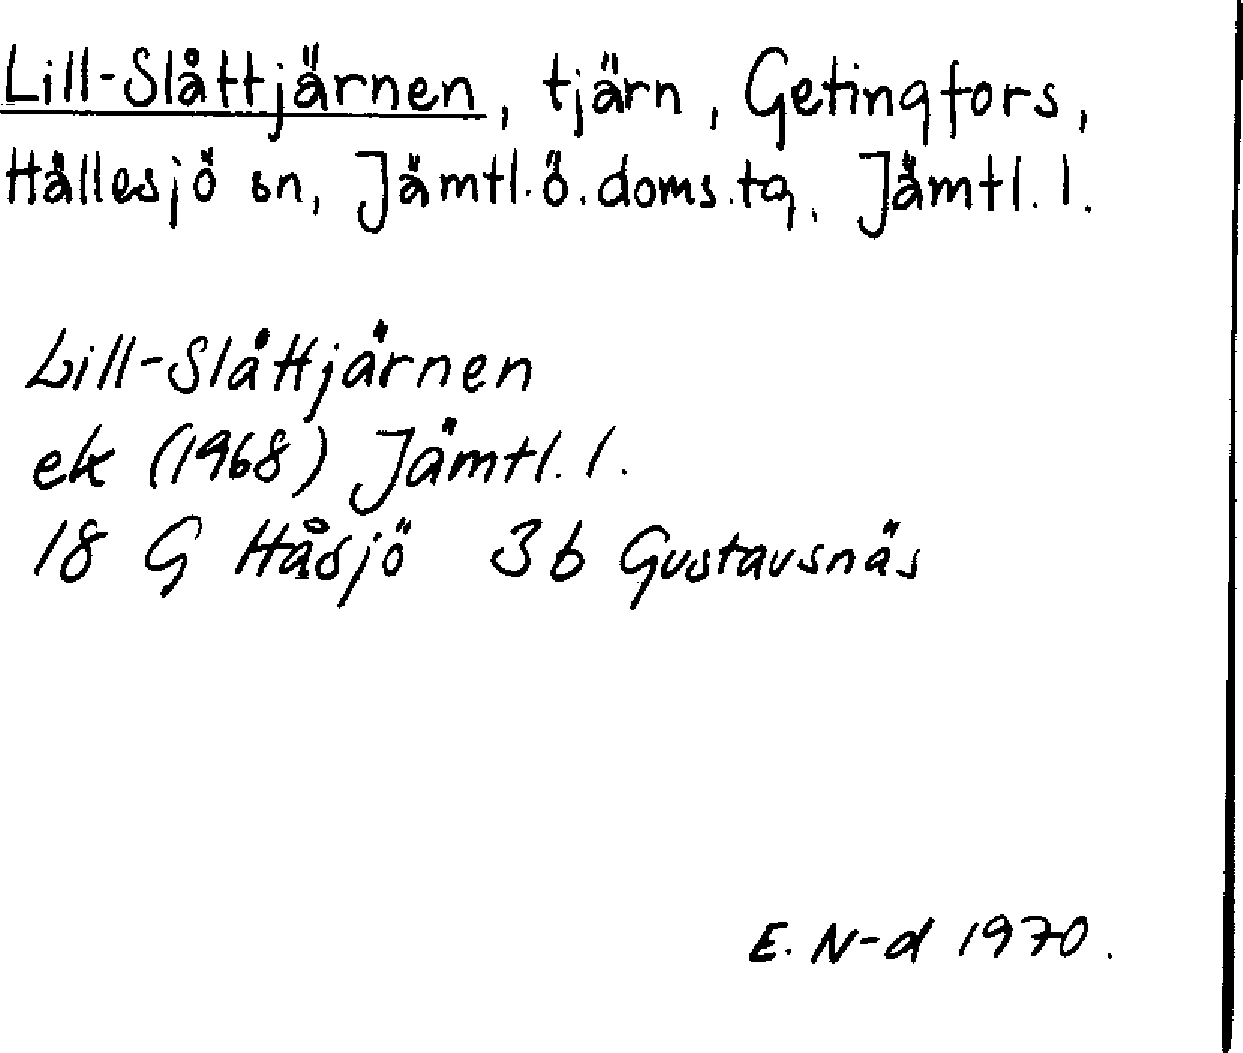 Lill-Slåttjärnen, tjärn, Getingfors,
Hällesjö sn, Jämtl.ö.doms.tg, Jämtl.l.
Lill-Slåttjärnen
ek (1968) Jämtl.l.
18 G Håsjö 3b Gustavsnäs
E. N-d 1970.